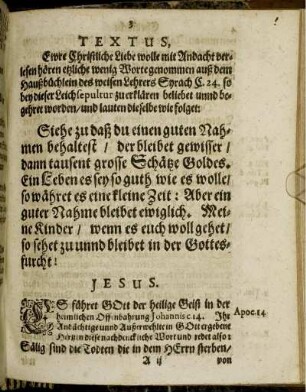 3
TEXTUS,
Ewre Christliche Liebe wolle mit Andacht ver-
lesen hören etzliche wenig Worte genommen auß dem
Haußbüchlein des weisen Lehrers Syrach C. 24. so
bey dieser Leichsepultur zu erklären beliebet unnd be-
gehret worden/ und lauten dieselbe wie folget:
Siehe zu daß du einen guten Nah-
men behaltest / der bleibet gewisser /
dann tausent grosse Schätze Goldes.
Ein Leben es sey so guth wie es wolle/
so währet es eine kleine Zeit: Aber ein
guter Nahme bleibet ewiglich. Mei-
ne Kinder / wenn es euch woll gehet/
so sehet zu unnd bleibet in der Gottes-
furcht:
JESUS.
ES führet GOtt der heilige Geist in der
heimlichen Offenbahrung Johannis c. 14. Ihr
Apoc. 14
Andächtige unnd Außerwehlte in Gott ergebene
Hertzen diese nachdenckliche Wort und redet also:
Sälig sind die Todten die in dem HErrn sterben/
A ij
von